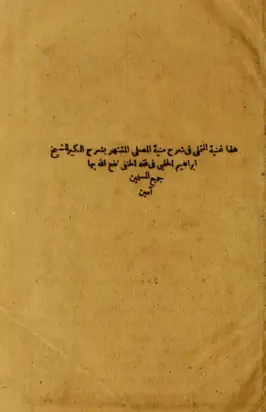 هذا غنية المتملى فى شرح منية المصلى المشتهر بشرح الكبير للشيخ
ابراهيم الحلبي فى فقه الحنفى نفع الله بها
جميع المسلمين
آمين